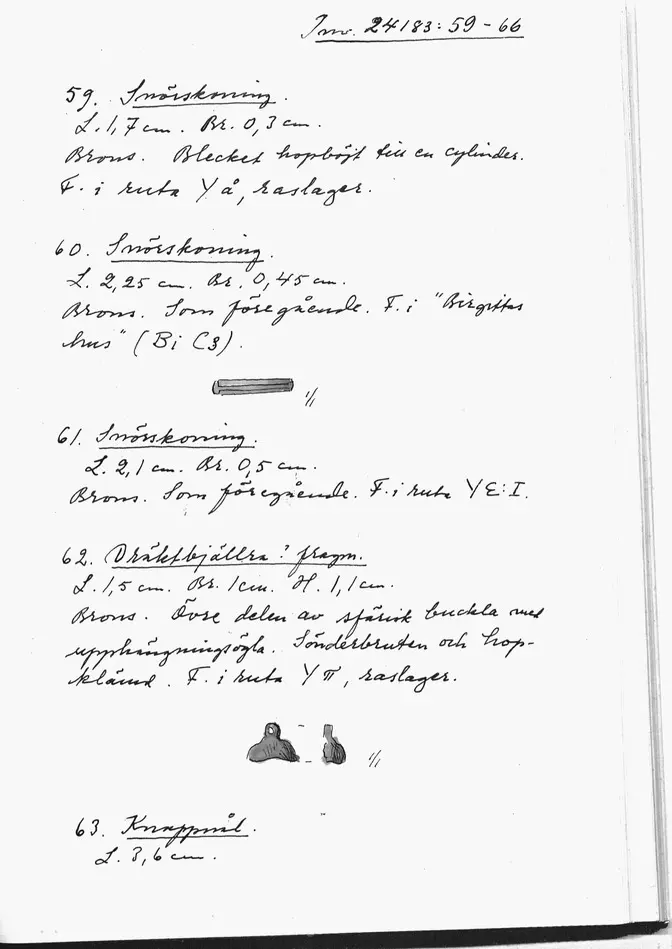 Inv. 24183:59-66
59. Snörskoning.
L. 1,7 cm. Br. 0,3 cm.
Brons. Blecket hopböjt till en cylinder.
F. i ruta Y å, raslager.
60. Snörskoning.
L. 2,25 cm. Br. 0,45 cm.
Brons. Som föregående. F. i "Birgittas
hus" (Bi C3).
1/1
61. Snörskoning.
L. 2,1 cm. Br. 0,5 cm.
Brons. Som föregående. F. i ruta Y E:I.
62. Dräktbjällra? fragm.
L. 1,5 cm. Br. 1 cm. H. 1,1 cm.
Brons. Övre delen av sfärisk buckla med
upphängningsögla. Sönderbruten och hop-
klämd. F. i ruta Y π, raslager.
1/1
63. Knappnål.
L. 3,6 cm.